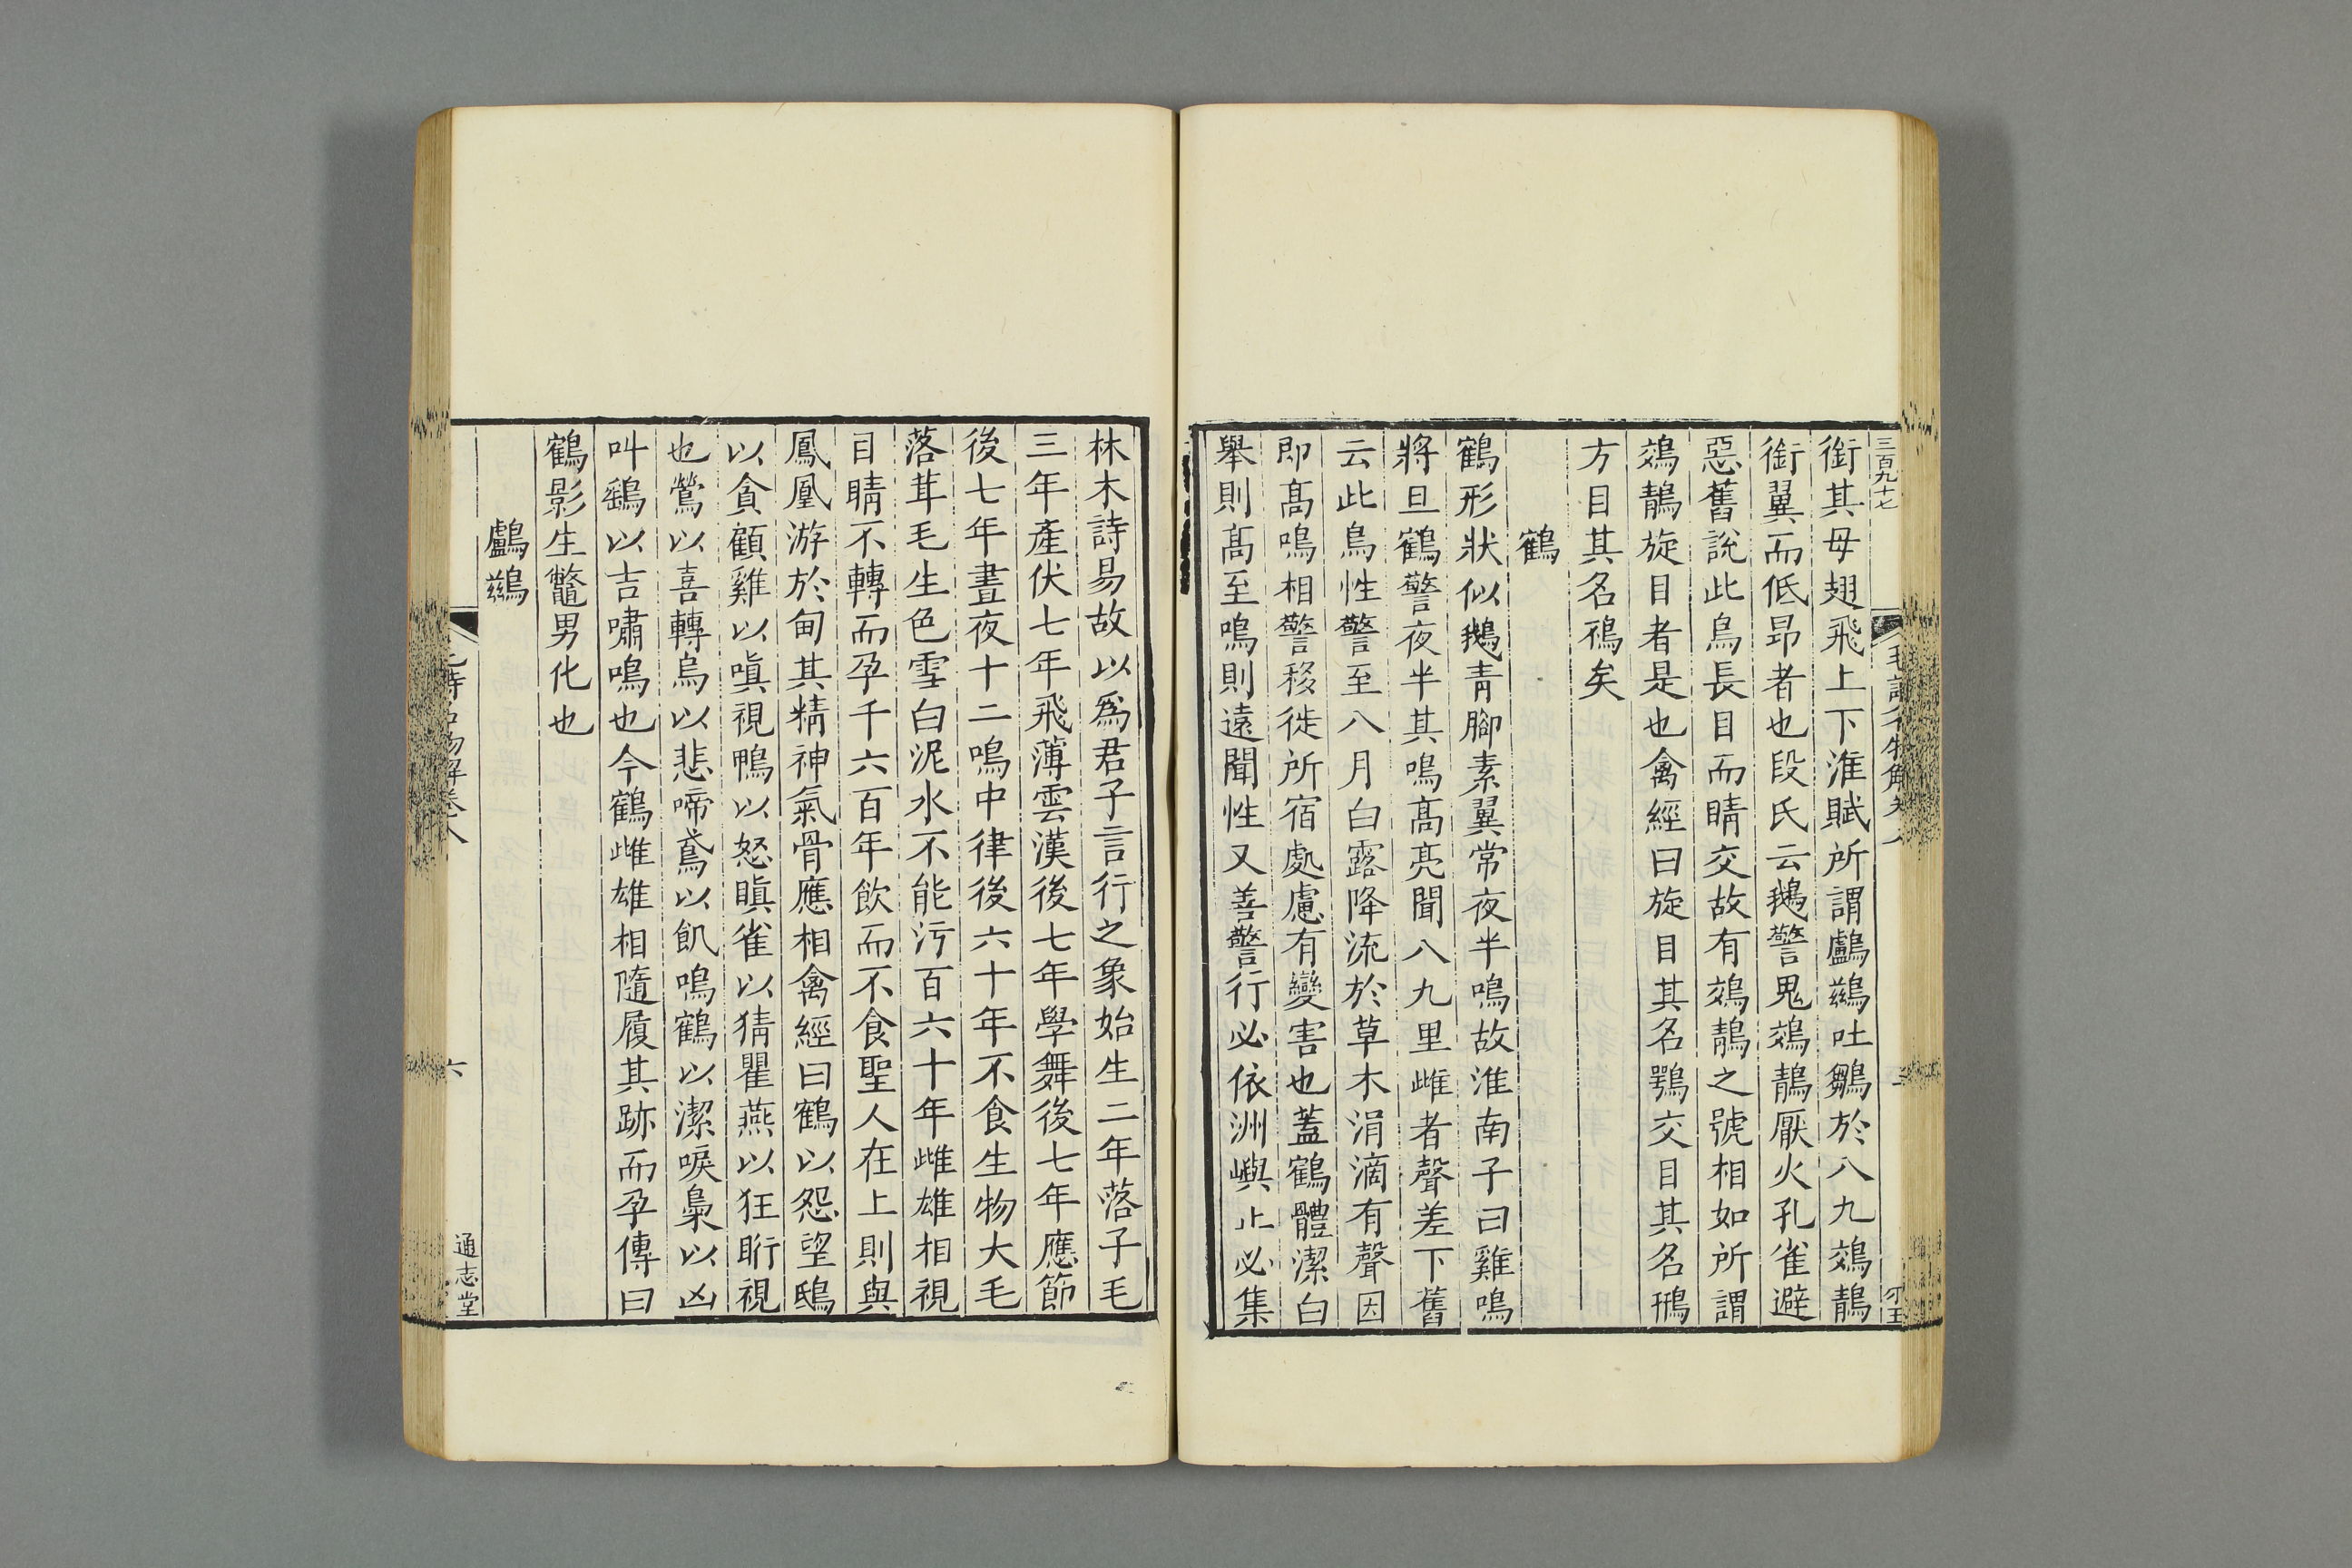 三百九十七
銜其母翅飛上下淮賦所謂鸕鷀吐鶵於八九鵁鶄
銜翼而低昂者也段氏云鵝警鬼鵁鶄厭火孔雀避
惡舊說此鳥長目而睛交故有鵁鶄之號相如所謂
鵁鶄旋目者是也禽經曰旋目其名鶚交目其名鳽
方目其名鳽矣
鶴
鶴形狀似鵝青腳素翼常夜半鳴故淮南子曰雞鳴
將旦鶴警夜半其鳴高亮聞八九里雌者聲差下舊
云此鳥性警至八月白露降流於草木涓滴有聲因
即高鳴相警移徙所宿處慮有變害也蓋鶴體潔白
舉則高至鳴則遠聞性又善警行必依洲嶼止必集
林木詩易故以爲君子言行之象始生二年落子毛
三年產伏七年飛薄雲漢後七年學舞後七年應節
後七年晝夜十二鳴中律後六十年不食生物大毛
落茸毛生色雪白泥水不能污百六十年雌雄相視
目睛不轉而孕千六百年飲而不食聖人在上則與
鳳凰游於甸其精神氣骨應相禽經曰鶴以怨望鴟
以貪顧雞以嗔視鴨以怒瞋雀以猜瞿燕以狂眄視
也鶯以喜轉烏以悲啼鳶以飢鳴鶴以潔唳梟以凶
叫鷂以吉嘯鳴也今鶴雌雄相隨履其跡而孕傳曰
鶴影生鼈男化也
鸕鷀
六
通志堂